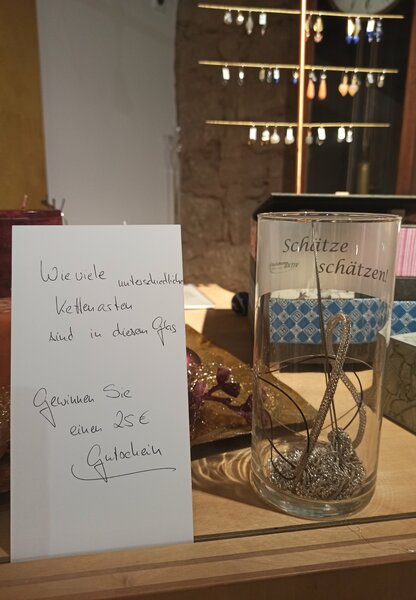 Wie viele unterschiedliche
Kettenarten
sind in diesem Glas
Gewinnen Sie
einen 25€
Gutschein
Schätze
schätzen!